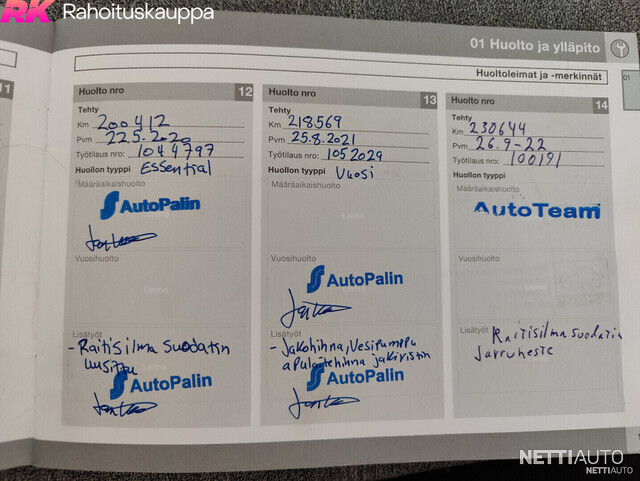 RK Rahoituskauppa
01 Huolto ja ylläpito
Huoltoleimat ja -merkinnät
01
11
Huolto nro 12
Tehty
Km 200412
Pvm 22.5.2020
Työtilaus nro: 1044797
Huollon tyyppi Essential
Määräaikaishuolto
AutoPalin
Vuosihuolto
Leima
Lisätyöt
- Raitisilma suodatin
uusittu
AutoPalin
Huolto nro 13
Tehty
Km 218569
Pvm 25.8.2021
Työtilaus nro: 1052029
Huollon tyyppi Vuosi
Määräaikaishuolto
Leima
Vuosihuolto
AutoPalin
Lisätyöt
- Jakohihna, Vesipumppu
apulaitehihna jakiristin
AutoPalin
Huolto nro 14
Tehty
Km 230644
Pvm 26.9-22
Työtilaus nro: 100191
Huollon tyyppi
Määräaikaishuolto
AutoTeam
Vuosihuolto
Lisätyöt
Raitisilma suodatin
Jarruneste
NETTIAUTO
NETTIAUTO